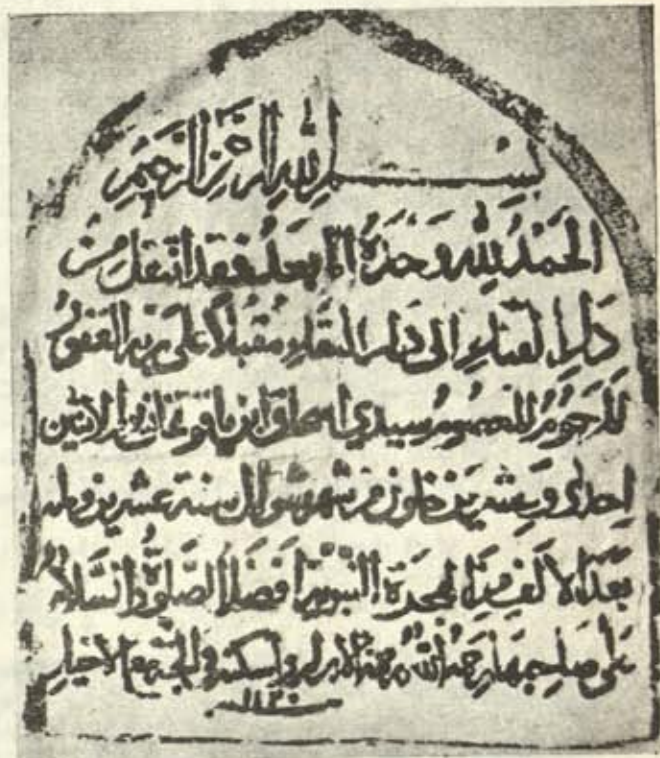 بسم الله الرحمن الرحيم
الحمد لله وحده اما بعد فقد انتقل من
دار الفناء الى دار البقاء مقبلا على ربه الغفور
المرحوم سيدي اسحاق ابن ياقوت الاثنين
احدى وعشرين خلون من شهر شوال سنة عشرين
بعد الالف من الهجرة النبوية افضل الصلوة والسلام
على صاحبها رحمه الله رحمة الابرار واسكنه في الجنة مع الاخيار